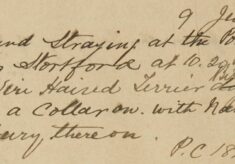 9 Ju
und Straying at the Po
s Stortford at 10.20
Wire Haired Terrier do
a Collar on with Na
ury thereon.
P.C 18